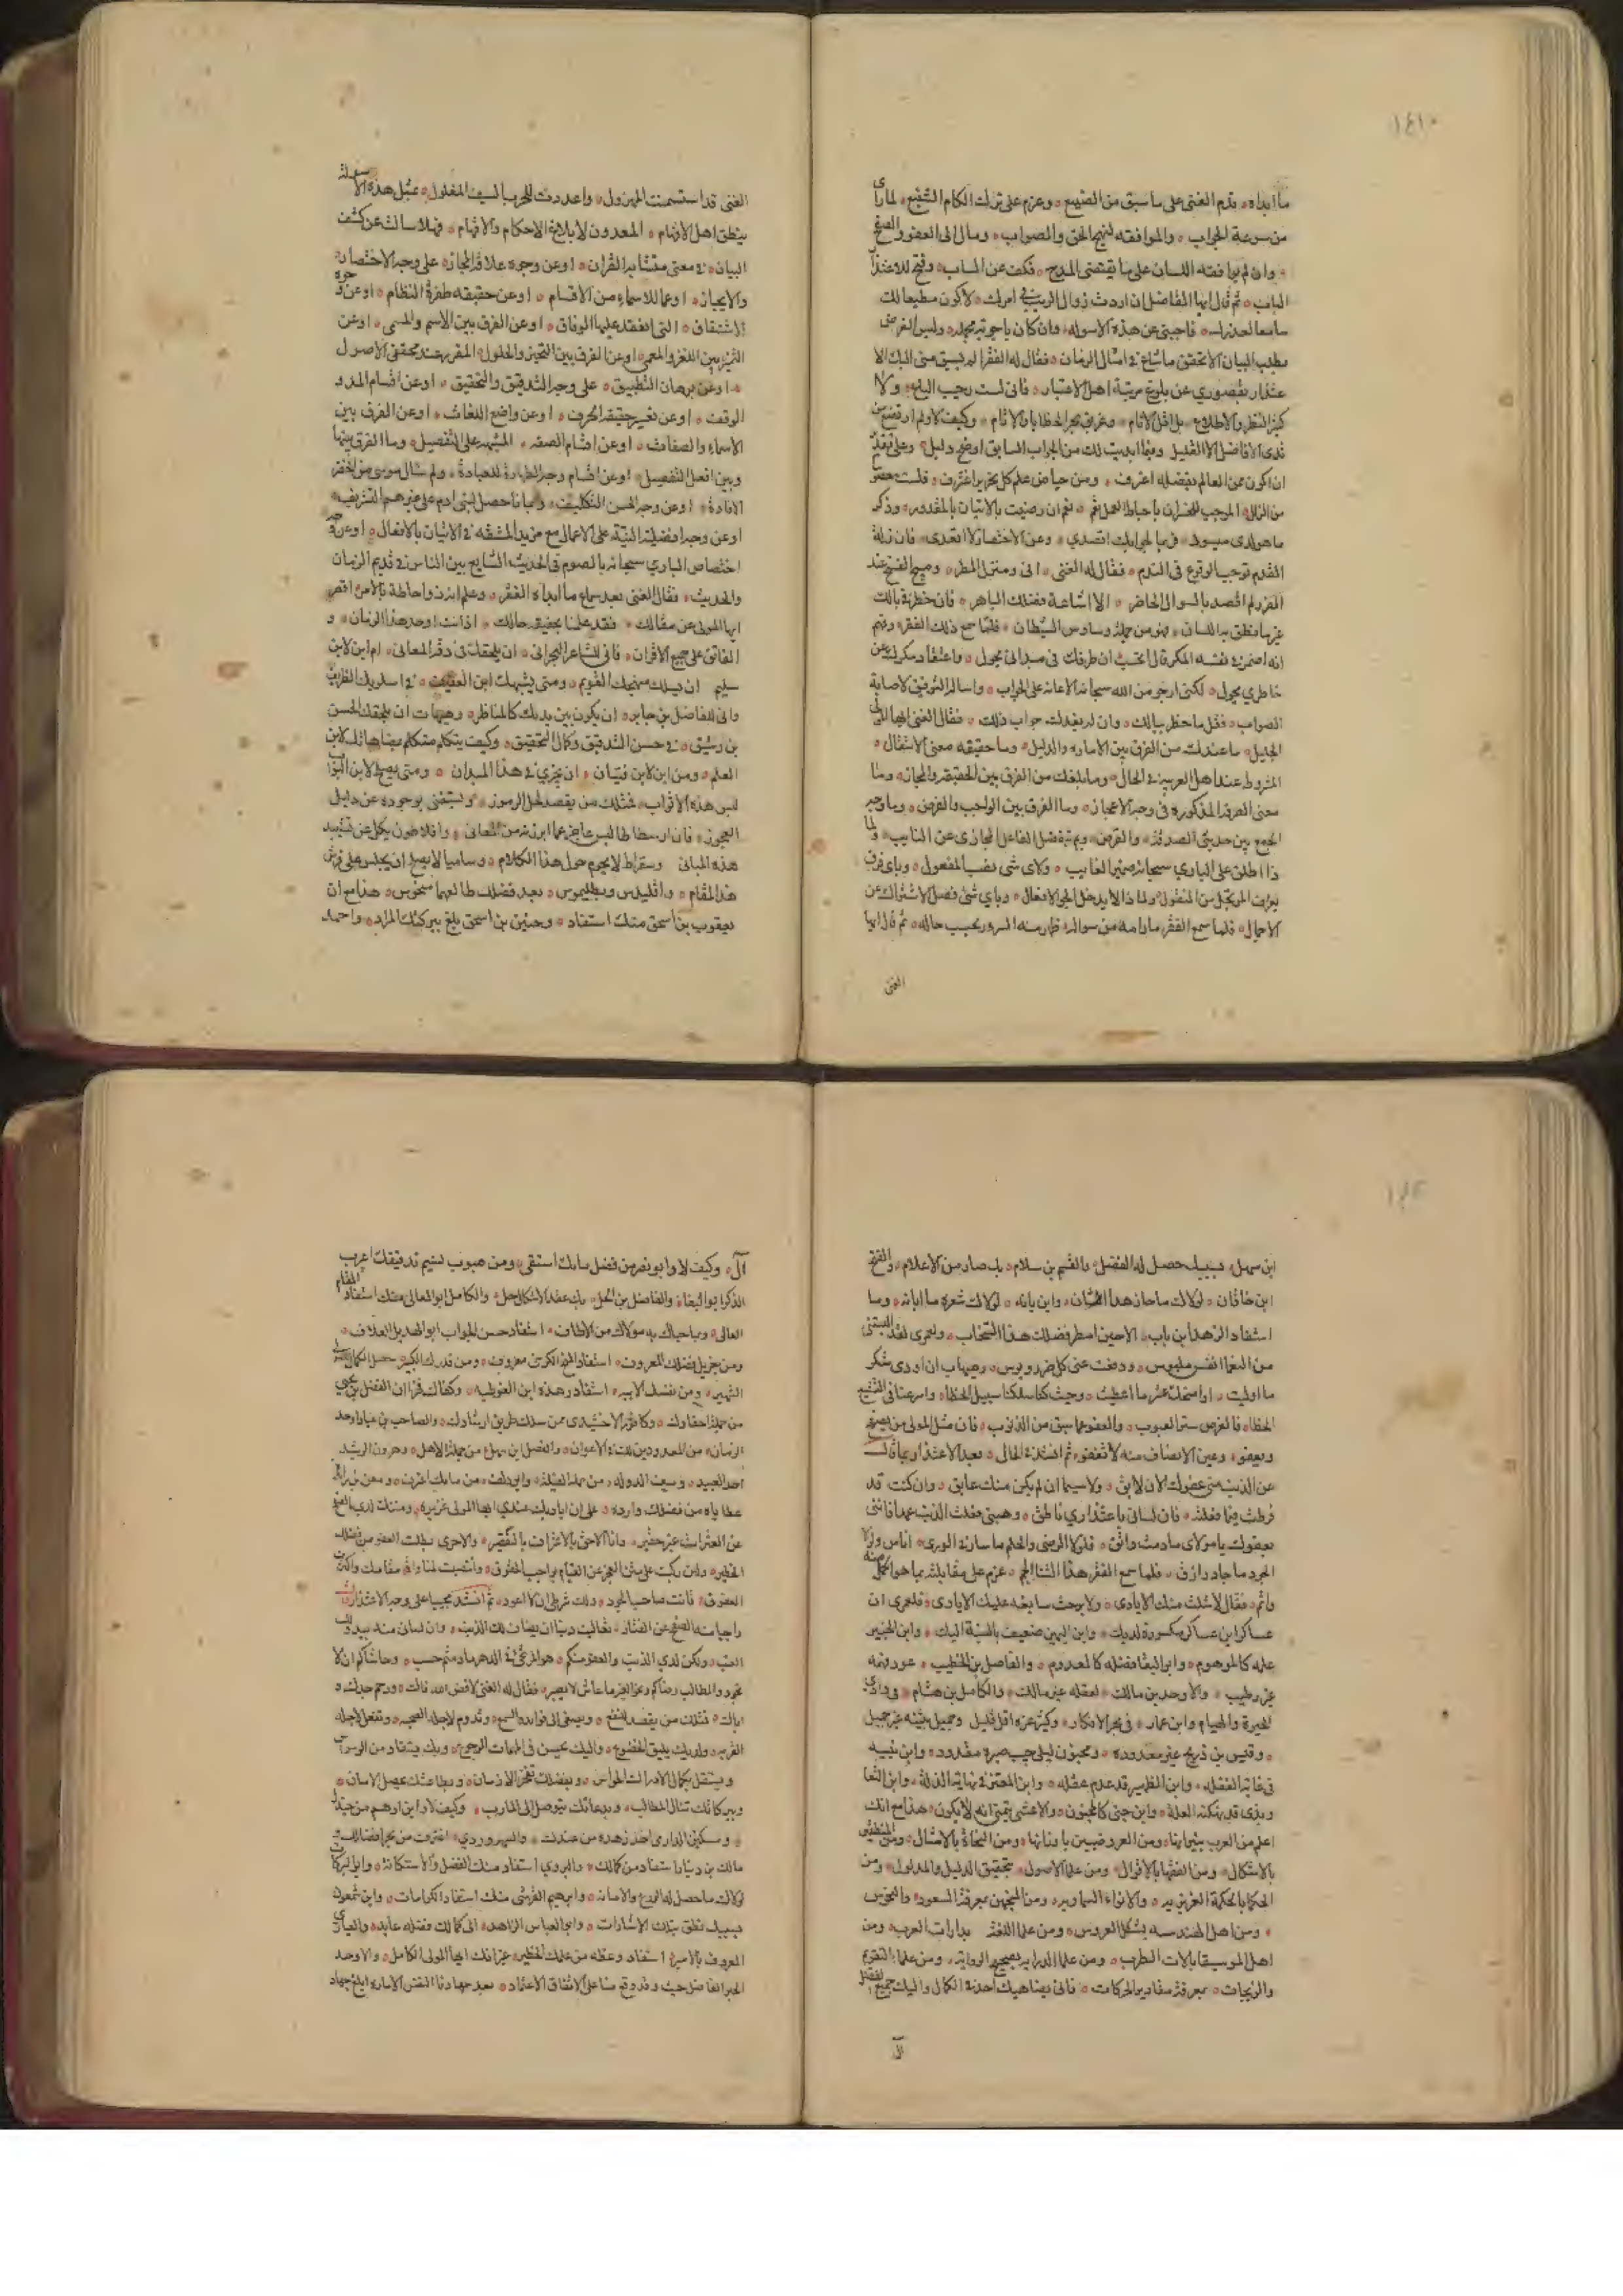 ١٤١٠
ما ابداه ٥ ندم الغنى على ما سبق من الصنيع ٥ وعزم على ترك الكلام الشنيع ٥ لما رأى
من سرعة الجواب ٥ والموافقه لنهج الحق والصواب ٥ ومال الى العفو والصفح
٥ وان لم يوافقه اللسان على ما يقتضى المدح ٥ فكف عن السباب ٥ وفتح للاعتذار
الباب ٥ ثم قال ايها الفاضل ان اردت زوال الريب في امرك ٥ لاكون مطيعا لك
سامعا لعذرك ٥ فاجبنى عن هذه الاسوله ٥ وان كان باجوبة مجمله ٥ وليس الغرض
بطلب البيان الا تحقق ما شاع في امثال الزمان ٥ فقال له الفقر الم يسبق منى اليك الا
عتذار بقصوري عن بلوغ مرتبة اهل الاعتبار ٥ فانى لست رحيب الباع ٥ ولا
كثير النظر والاطلاع ٥ بل اقل الانام ٥ وغريق بحر الخطايا والاثام ٥ وكيف لا ولم ارتضع من
ثدى الافاضل الا القليل ٥ وفيما ابديت لك من الجواب السابق اوضح دليل ٥ وعلى تقدير
ان اكون ممن العالم بفضله اعترف ٥ ومن حياض علم كل نحرير اغترف ٥ فلست معصوما
من الزلل ٥ الموجب للخسران باحباط العمل ٥ نعم ان رضيت بالاتيان بالمقدور ٥ وذكر
ما هو لدى ميسور ٥ فها لجوابك اتصدي ٥ وعن الاختصار لا اتعدى ٥ فان زلة
القدم توجب الوقوع في الندم ٥ فقال له الغنى ٥ انى ومنزل المطر ٥ ومبيح الفسح عند
الضرر لم اقصد بالسوال الحاضر ٥ الا اشاعة فضلك الباهر ٥ فان خطر ببالك
غير ما نطق به اللسان ٥ فهو من جملة وساوس الشيطان ٥ فلما سمع ذلك الفقر وفهم
انه اضمر في نفسه المكر قال احتسب ان طرفك في ميدانى يجول ٥ واعتقاد مكرك عن
خاطري يحول ٥ لكنى ارجو من الله سبحانه الاعانة على الجواب ٥ واساله التوفيق لاصابة
الصواب ٥ فقل ما خطر ببالك ٥ وان لم يفدك جواب ذلك ٥ فقال الغنى ايها المولى
الجليل ٥ ما عندك من الفرق بين الاماره والدليل ٥ وما حقيقه معنى الانتقال ٥
المشروط عند اهل العربية في الحال ٥ وما بلغك من الفرق بين الحقيقة والمجاز ٥ وما
معنى الصرفه المذكوره في وجه الاعجاز ٥ وما الفرق بين الواجب والفرض ٥ وما وجه
الجمع بين حديثى الصدقة ٥ والقرض ٥ وبم يفضل الفاعل المجازى عن النايب ٥ ولما
ذا اطلق على الباري سبحانه ضمير الغايب ٥ ولاى شى نصب المفعول ٥ وباى فرق
يعرف المرتجل من المنقول ٥ ولما ذا لا يدخل الجر الافعال ٥ وباي شئ فصل الاشتراك عن
الاجمال ٥ فلما سمع الفقر ما رامه من سواله ٥ ظهر منه السرور بحسب حاله ٥ ثم قال ايها
الغنى
الغنى قد استسمنت المهزول ٥ واعددت للحرب السيف المفلول ٥ بمثل هذه الاسئلة
ينطق اهل الافهام ٥ المعدون لابلاغ الاحكام والافهام ٥ فهلا سالت عن كشف
البيان ٥ في معنى متشابه القران ٥ او عن وجوه علاقة المجاز ٥ على وجه الاختصار
والايجاز ٥ او عما للاسماء من الاقسام ٥ او عن حقيقه طفرة النظام ٥ او عن وجوه
الاشتقاق ٥ التى انعقد عليها الوفاق ٥ او عن الفرق بين الاسم والمسمى ٥ او عن
التميز بين اللغز والمعمى ٥ او عن الفرق بين التحيز والحلول ٥ المقرر عند محققى الاصول
٥ او عن برهان التطبيق ٥ على وجه التدقيق والتحقيق ٥ او عن اقسام المد و
الوقف ٥ او عن تغير حقيقة الحرف ٥ او عن واضع اللغات ٥ او عن الفرق بين
الاسماء والصفات ٥ او عن اقسام الصفه ٥ المشبهه على التفصيل ٥ وما الفرق بينها
وبين افعل التفضيل ٥ او عن اقسام وجه الطهارة للعبادة ٥ ولم سال موسى من الخضر
الافادة ٥ او عن وجه الحسن التكليف ٥ وبما ذا حصل لبنى ادم على غيرهم التشريف ٥
او عن وجه افضلية النية على الاعمال مع مزيد المشقه في الاتيان بالافعال ٥ او عن وجه
اختصاص الباري سبحانه بالصوم في الحديث الشايع بين الناس في قديم الزمان
والحديث ٥ فقال الغنى بعد سماع ما ابداه الفقر ٥ وعلم انه ذو احاطة بالامر اقصر
ايها المولى عن مقالك ٥ فقد علمنا بحقيقة حالك ٥ اذ انت اوحد هذا الزمان ٥ و
الفائق على جميع الاقران ٥ فانى للشاعر البحرانى ٥ ان يلحقك في دقة المعانى ٥ ام اين لابن
سليم ان يسلك منهجك القويم ٥ ومتى يشبهك ابن العفيف ٥ في اسلوبك الظريف
وانى للفاضل بن جابر ٥ ان يكون بين يديك كالمناظر ٥ وهيهات ان يلحقك الحسن
بن رشيق ٥ في حسن التدقيق وكمال التحقيق ٥ وكيف يتكلم متكلم بمضاهاتك لابن
العلم ٥ ومن اين لابن قتيان ٥ ان يجزي في هذا الميدان ٥ ومتى يصح لابن البواب
لبس هذه الاثواب ٥ فمثلك من يقصد لحل الرموز ٥ ويستغنى بوجوده عن دليل
العجوز ٥ فان ارسطاطاليس عاجز عما ابرزته من المعانى ٥ وافلاطون يكل عن تشييد
هذه المبانى وسقراط لا يحوم حول هذا الكلام ٥ وساميا لا يصلح ان يجلس على فرش
هذا المقام ٥ واقليدس وبطليموس ٥ بعد فضلك طالعهما منحوس ٥ هذا مع ان
يعقوب بن اسحق منك استفاد ٥ وحنين بن اسحق بلغ ببركتك المراد ٥ واحمد
ابن سهل ٥ بسببك حصل له الفضل ٥ والقسم بن سلام ٥ بك صار من الاعلام ٥ والفتح
ابن خاقان ٥ لولاك ما حاز هذا الشان ٥ وابن بانه ٥ لولاك شعره ما ابانه ٥ وما
استفاد الزهد ابن باب ٥ الا حين اسطر فضلك هذا السحاب ٥ ولعمرى لقد البستنى
من النعما افخر ملبوس ٥ ودفعت عنى كل ضر وبوس ٥ وهيهات ان اودى شكر
ما اوليت ٥ او استملك عشر ما اعطيت ٥ وحيث كنا سلكنا سبيل الخطا ٥ واسرعنا في
الخطا ٥ فالغرض ستر العيوب ٥ والعفو عما سبق من الذنوب ٥ فان مثل المولى من يصفح
ويعفو ٥ وعين الانصاف منه لا تغفو ٥ ثم انشد في الحال ٥ بعد الاعتذار عما قال
عن الذنب منى عفوك الان لايق ٥ ولا سيما ان لم يكن منك عايق ٥ وان كنت قد
فرطت فيما فعلته ٥ فان لسانى باعتذاري ناطق ٥ وهبنى فعلت الذنب عمدا فاننى
بعفوك يا مولاى ما دمت واثق ٥ فلولا الرضى والحلم ما ساد في الورى ٥ اناس ولولا
الجود ما جاد رازق ٥ فلما سمع الفقر هذا الثنا الجم ٥ عزم على مقابلته بما هو اكمل منه
واتم ٥ فقال لا شلت منك الايادى ٥ ولا برحت سابغه عليك الايادى ٥ فلعمرى ان
عساكر ابن عساكر مكسورة لديك ٥ وابن اليمين ضعيف بالنسبة اليك ٥ وابن الخبير
علمه كالموهوم ٥ وابو البقا فضله كالمعدوم ٥ والفاضل بن الخطيب ٥ عود فهمه
غير رطيب ٥ والاوحد بن مالك ٥ لعقله غير مالك ٥ والكامل بن هشام ٥ في وادي
الحيرة والهيام وابن عمار ٥ في بحر الافكار ٥ وكثير عزه اقل قليل وجميل بثينه غير جميل
٥ وقيس بن ذريح غير معدوده ٥ ومجنون ليلى حبيب صبره مفقود ٥ وابن نبيه
في غاية الغفله ٥ وابن الظهير قد عدم عقله ٥ وابن المعتز في نهاية الذلة ٥ وابن التعا
ويذى قد نهكته العلة ٥ وابن جنى كالمجنون ٥ والاعشى يتمنى انه لا يكون ٥ هذا مع انك
اعلم من العرب بتيرانها ٥ ومن العروضيين باوزانها ٥ ومن النحاة بالامثال ٥ ومن المنطقيين
بالاشكال ٥ ومن الفقها بالاقوال ٥ ومن علما الاصول ٥ بتحقيق الدليل والمدلول ٥ ومن
الحكما بالحكمة الغريزيه ٥ والانواء السماويه ٥ ومن المنجمين بمعرفة السعود ٥ والنحوس
٥ ومن اهل الهندسه بشكل العروس ٥ ومن علما اللغة بدارات العرب ٥ ومن
اهل الموسيقا بالات الطرب ٥ ومن علما الدرايه بصحيح الروايه ٥ ومن علما التقويم
والزيجات ٥ بمعرفة مقادير الحركات ٥ فانى يضاهيك احد في الكمال واليك جميع الفضل
آل
آل ٥ وكيف لا وابو نصر من فضل مابك استقى ٥ ومن صبوب نسيم تدقيقك اعرب
الذكر ابو البقا ٥ والفاضل بن الحل ٥ بك عقد الاشكال حل ٥ والكامل ابو المعالى منك استفاد المقام
العالى ٥ وبما حباك به مولاك من الالطاف ٥ استفاد حسن الجواب ابو الهذيل العلاف ٥
ومن جزيل فضلك المعروف ٥ استفاد الشيخ الكرخى معروف ٥ ومن قدرك الكبير حصل الكمال
الشهير ٥ ومن نفسك الابيه ٥ استفاد زهده ابن الغوطيه ٥ وكفاك فخرا ان الفضل بن يحيى
من جملة احقارك ٥ وكافور الاخشيدى ممن سلك طريق ارشادك ٥ والصاحب بن عباد اوحد
الزمان ٥ من المعدودين لك في الاعوان ٥ والفضل بن سهل من جملة الاهل ٥ وهرون الرشيد
احد العبيد ٥ وسيف الدوله ٥ وابن دلف ٥ من مابك اغترف ٥ ومعن بن زائدة
عطاياه من فضلك وارده ٥ على ان اياديك عندي ايها المولى غزيره ٥ ومننك لدي بالصفح
عن العثرات غير حقير ٥ وانا الاحق بالاعتراف بالتقصير ٥ والاحرى بطلب العفو من فضلك
الخطير ٥ ولئن ركبت على متن العجز عن القيام بواجب الحقوق ٥
العقوق ٥ فانت صاحب الجود ٥ ولك شرطى ان لا اعود ٥ ثم انشد مجيبا على وجه الاعتذار
راجيا منه الصفح عن العثار ٥
العتب ٥ ولكن لدي الذنب والعفو منكم ٥ هو المرتجى في الدهر ما دمتم حسب ٥ وحاشاكم ان لا
تجود والمطالب رضاكم وعز الغير ما عاش لا يصبو ٥ فقال له الغنى لا فض الله فاك ٥ ورحم جدك و
اباك ٥ فمثلك من يقصد للنفع ٥ ويصغى الى فوايده السمع ٥ وتدوم لاجله الصحبه ٥
القربه ٥ ولديك يليق الخضوع ٥ واليك يحسن في المهمات الرجوع ٥ وبك يستفاد من الوسواس
ويستقل بكمال الادراك الحواس ٥ وبفضلك تفتخر الازمان ٥ وبطاعتك يحصل الامان ٥
وببركاتك تنال المطالب ٥ وبدعائك يتوصل الى المآرب ٥ وكيف لا وابن ادهم من جندك
٥ ومسكين الدارمى اخذ زهده من عندك ٥ والسهروردي ٥ اغترف من بحر افضالك ٥ و
مالك بن دينار استفاد من كمالك ٥ والنووي استفاد منك الفضل والاستكانة ٥ وابو البركات
لولاك ما حصل له الورع والامانه ٥ وابرهيم القرشى منك استفاد الكرامات ٥ وابن شمعون
بسببك نطق بتلك الاشارات ٥ وابو العباس الزاهد ٥ الى كمالك وفضله عايد ٥
المعروف بالامير ٥ استفاد وعظه من علمك الخطير ٥ غير انك ايها المولى الكامل ٥ والاوحد
الحبر الفاضل حيث وقد وقع منا على الاتفاق الاعتماد ٥ بعد جهادنا النفس الاماره ابلغ جهاد